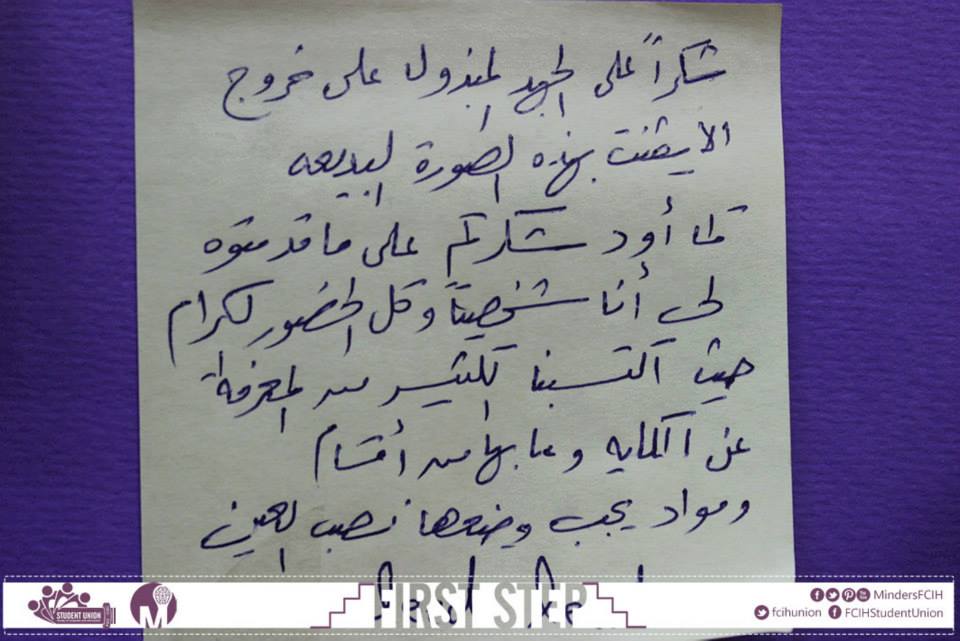 شكراً على الجهد المبذول على خروج
الايڤنت بهذه الصورة البديعه
كما أود شكركم على ما قدمتوه
لى أنا شخصيتاً وكل الحضور الكرام
حيث اكتسبنا الكثير من المعرفة
عن الكليه وما بها من أقسام
ومواد يجب وضعها نصب العين
FIRST STEP
STUDENT UNION
M
MindersFCIH
fcihunion
FCIHStudentUnion